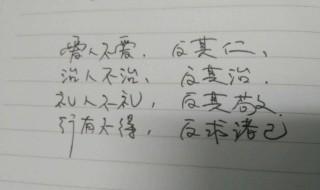 爱人不爱，反其仁、
治人不治，反其治.
礼人不礼，反其敬.
行有不得，反求诸己